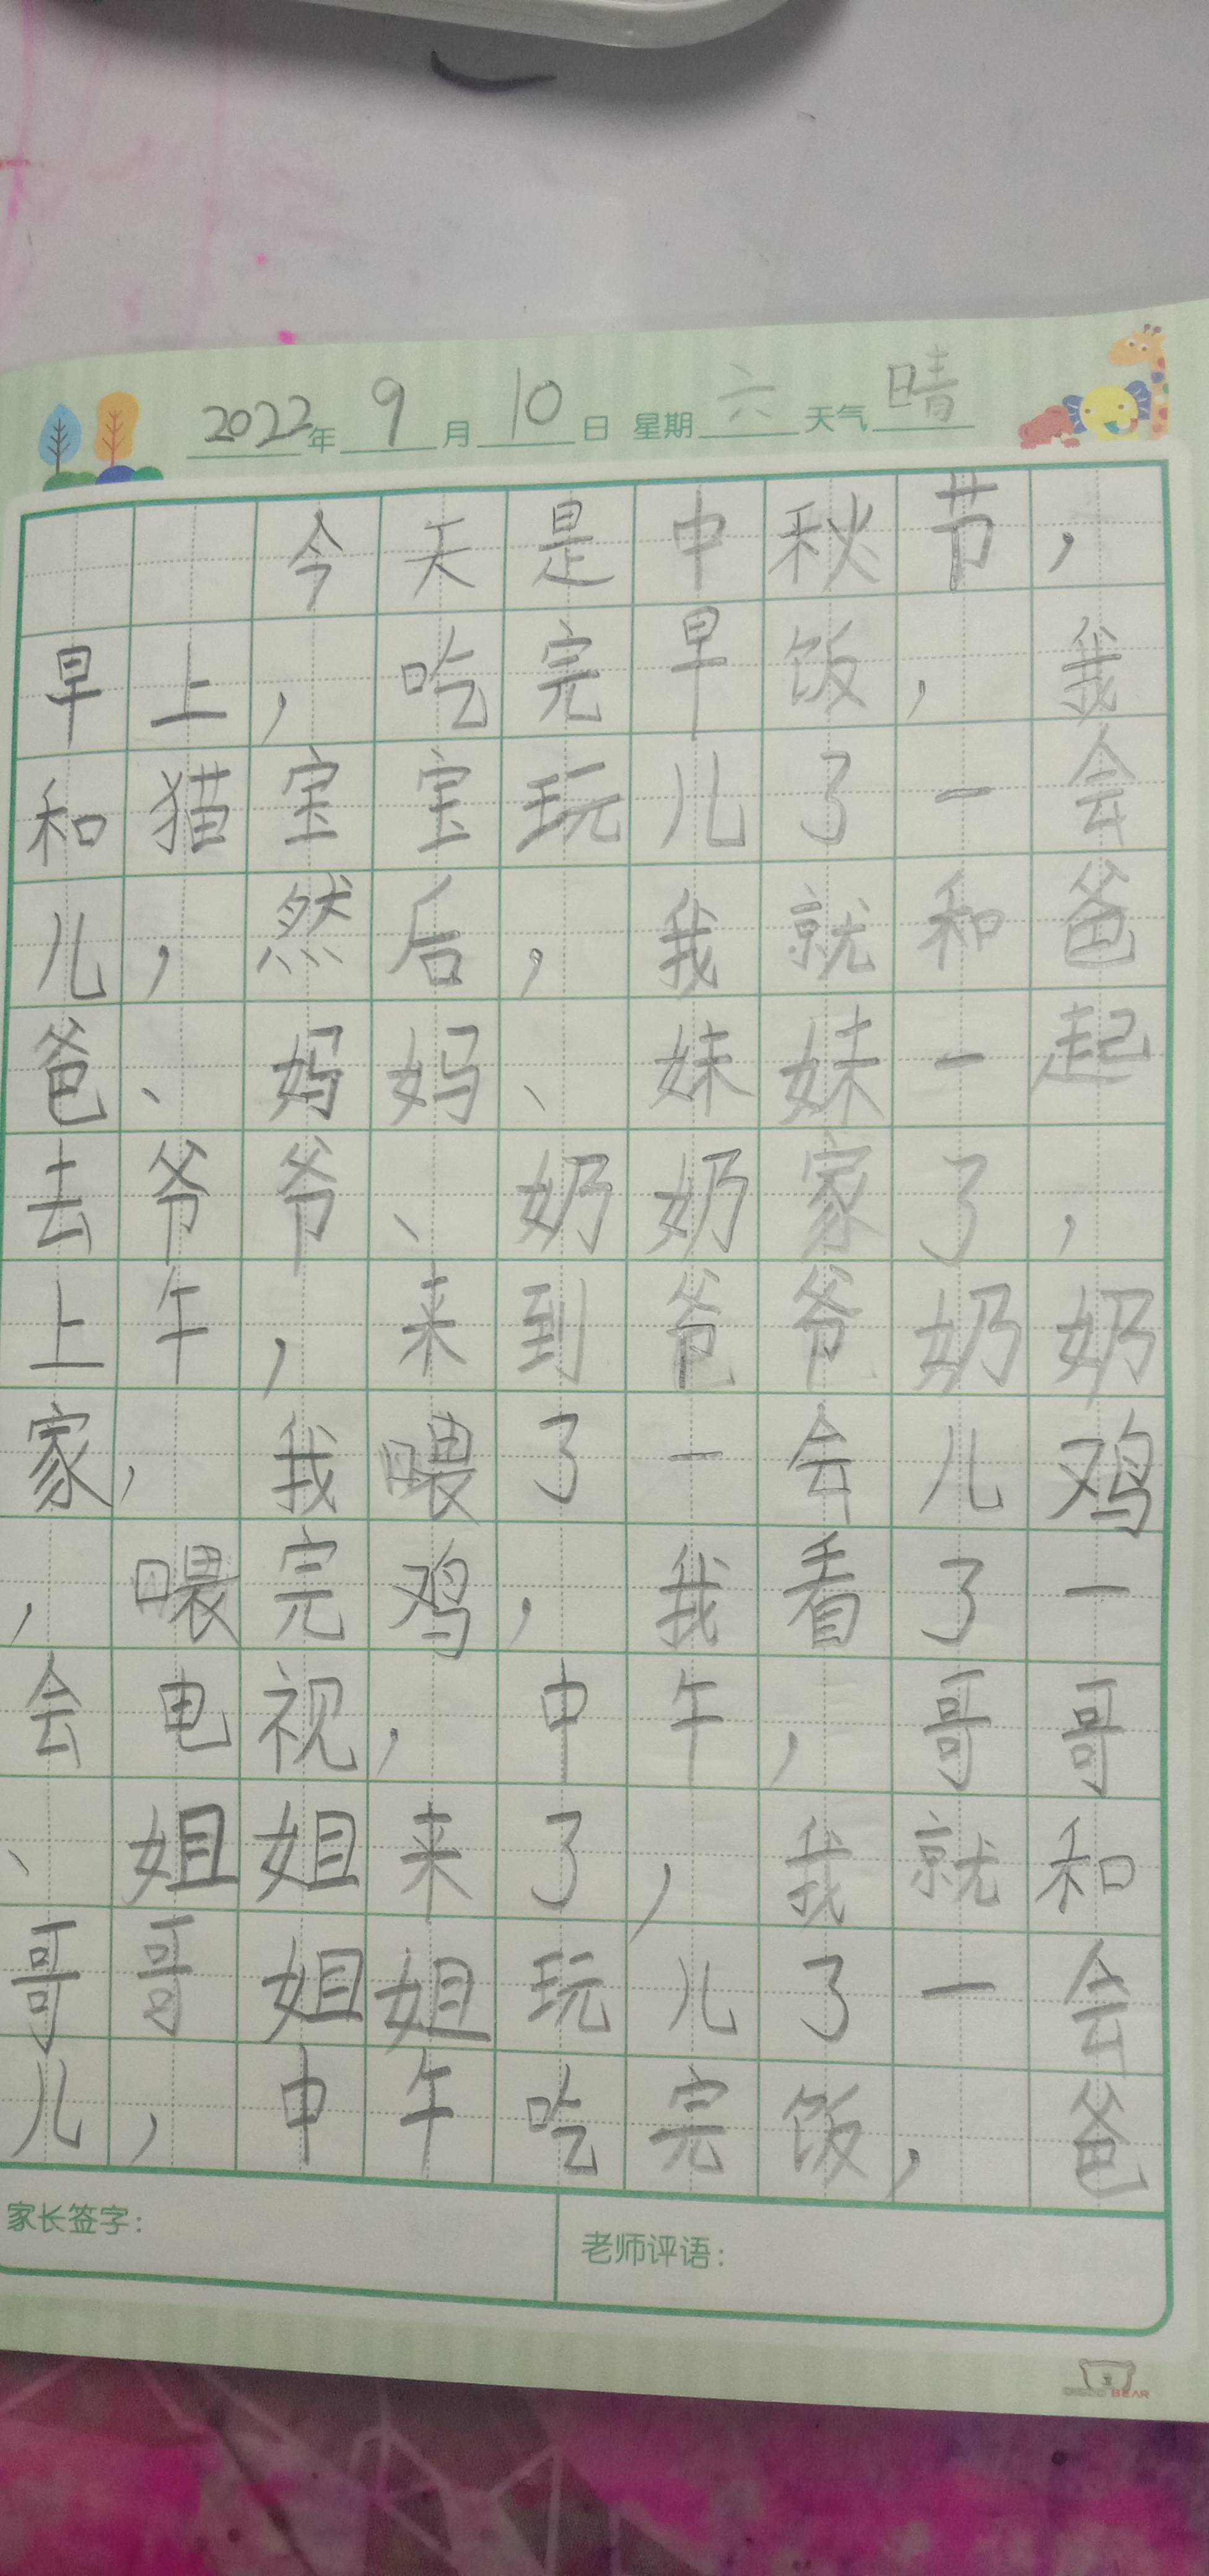 2022年9月10日 星期六 天气晴
今天是中秋节，
早上，吃完早饭，我
和猫宝宝玩儿了一会
儿，然后，我就和爸
爸、妈妈、妹妹一起
去爷爷、奶奶家了，
上午，来到爸爷奶奶
家，我喂了一会儿鸡
，喂完鸡，我看了一
会电视，中午，哥哥
、姐姐来了，我就和
哥哥姐姐玩儿了一会
儿，中午吃完饭，爸
家长签字：
老师评语：
BEAR